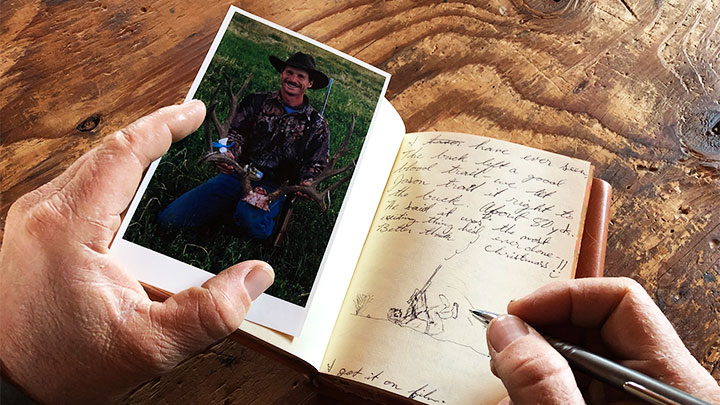 I have ever seen
The buck left a good
blood trail. we let
Jason trail it right to
the buck. About 80 yds.
He said it was the most
exciting thing he'd ever done-
Better than Christmas!!
I got it on film.